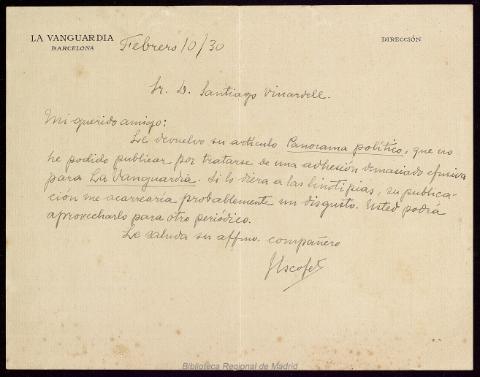 LA VANGUARDIA
BARCELONA
DIRECCIÓN
Febrero 10/30
Sr. D. Santiago Vinardell.
Mi querido amigo:
Le devuelvo su artículo Panorama político, que no
he podido publicar por tratarse de una adhesión demasiado efusiva
para La Vanguardia. Si lo diera a las linotipias, su publica-
ción me acarrearía probablemente un disgusto. Usted podrá
aprovecharlo para otro periódico.
Le saluda su affmo. compañero
JEscofet
Biblioteca Regional de Madrid